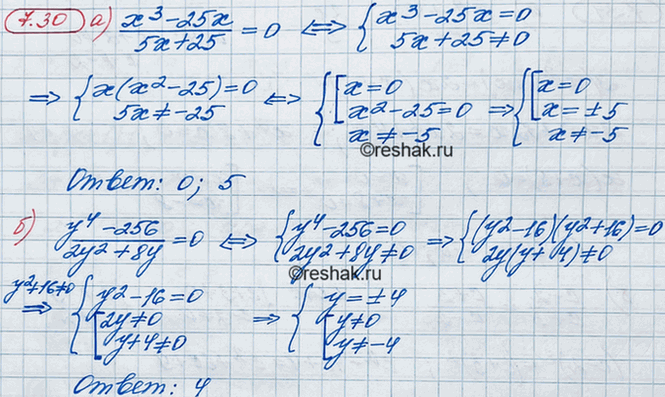 7.30 а) (x³-25x)/(5x+25) = 0 <=> { x³-25x=0
5x+25≠0
=> { x(x²-25)=0 <=> { [ x=0 => { [ x=0
5x≠-25 x²-25=0 x=±5
x≠-5 x≠-5
©reshak.ru
Ответ: 0; 5
б) (y⁴-256)/(2y²+8y) = 0 <=> { y⁴-256=0 => { (y²-16)(y²+16)=0
2y²+8y≠0 2y(y+4)≠0
©reshak.ru
y²+16≠0 => { y²-16=0 => { y=±4
[ 2y≠0 [ y≠0
y+4≠0 y≠-4
Ответ: 4